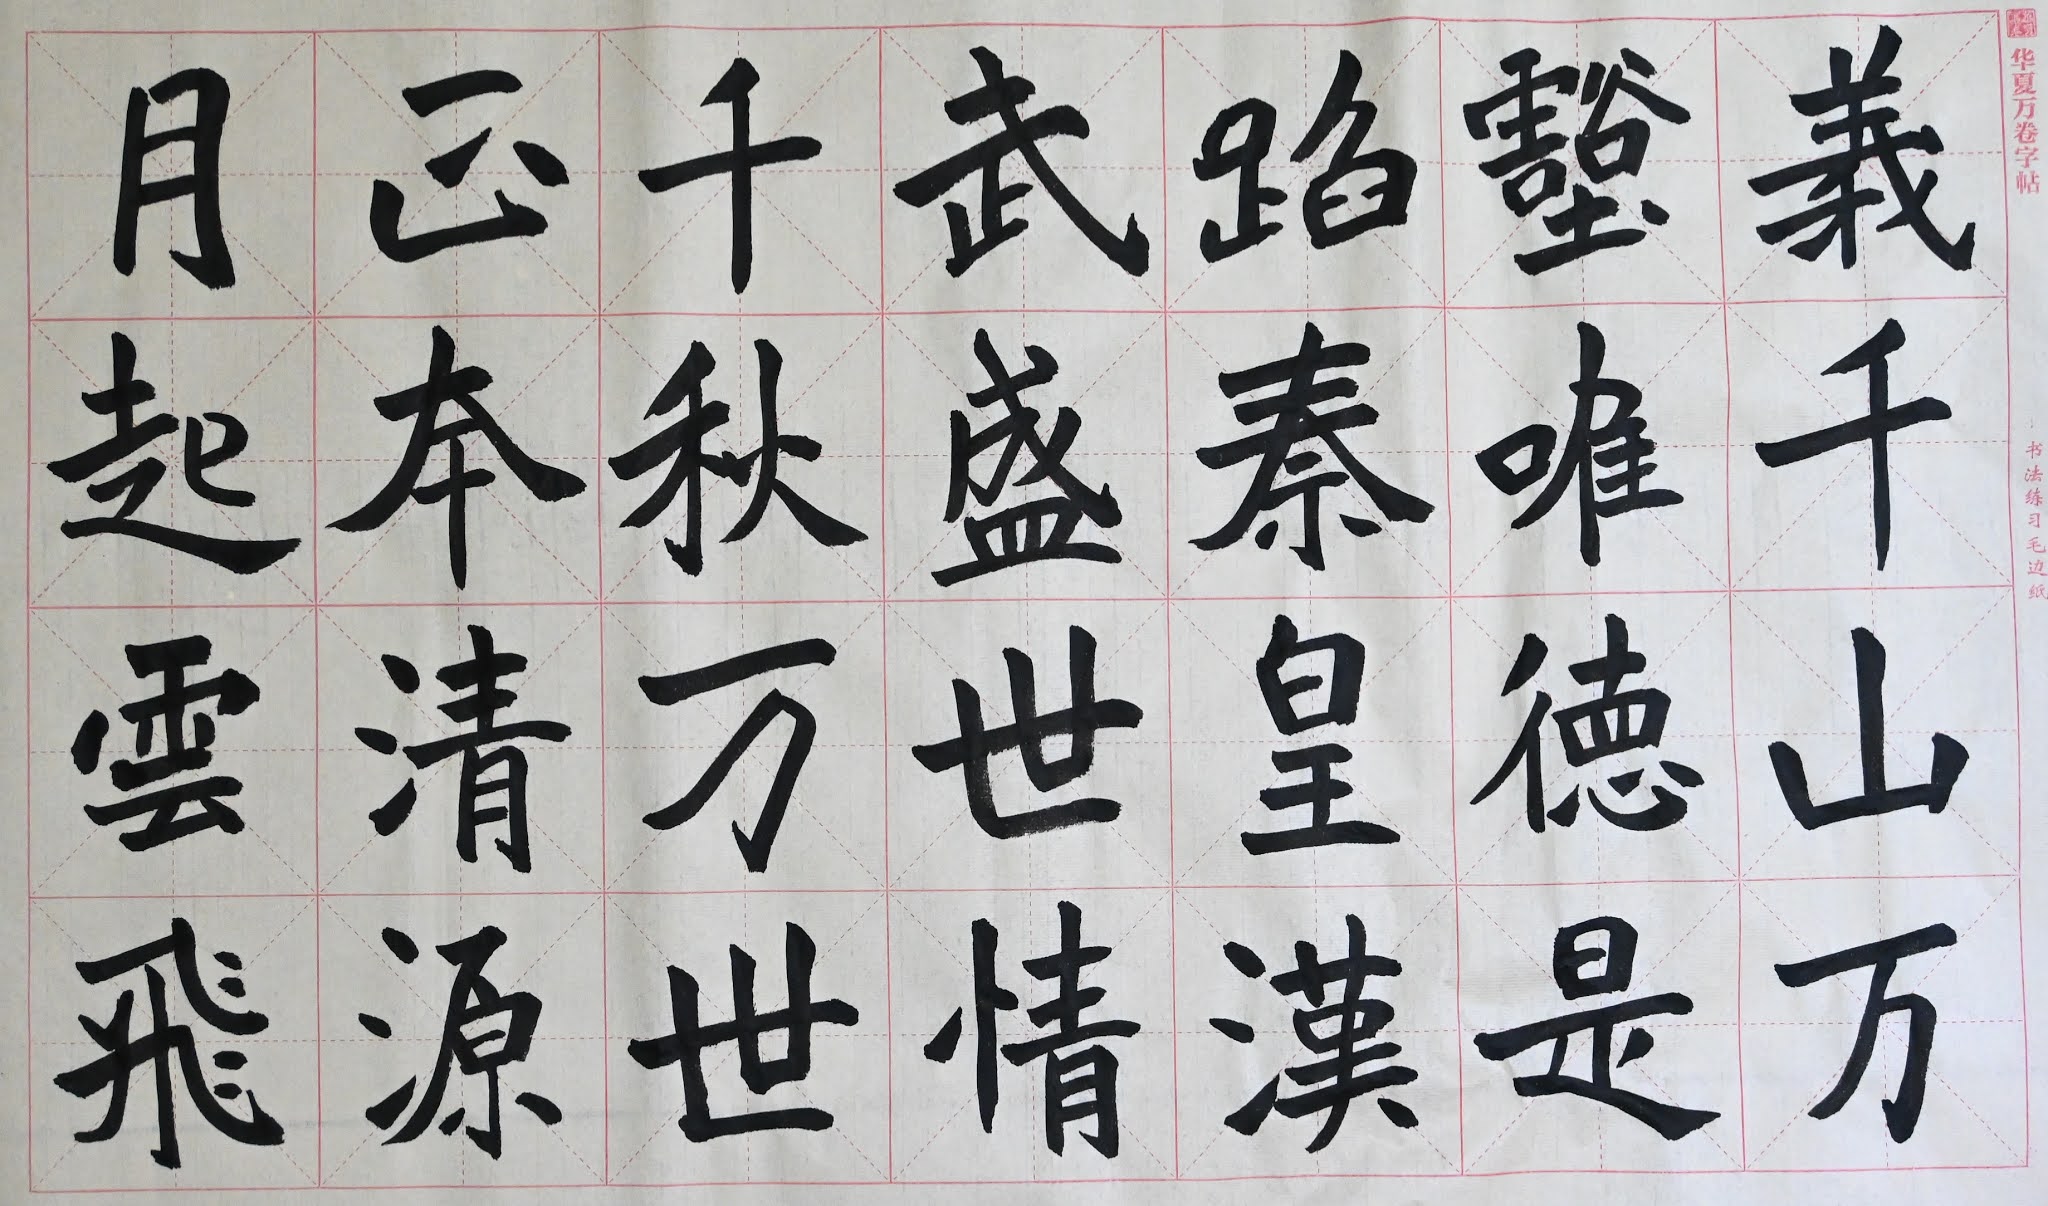 华夏万卷字帖
书法练习毛边纸
義千山万
壑唯德是
蹈秦皇漢
武盛世情
千秋万世
正本清源
月起雲飛